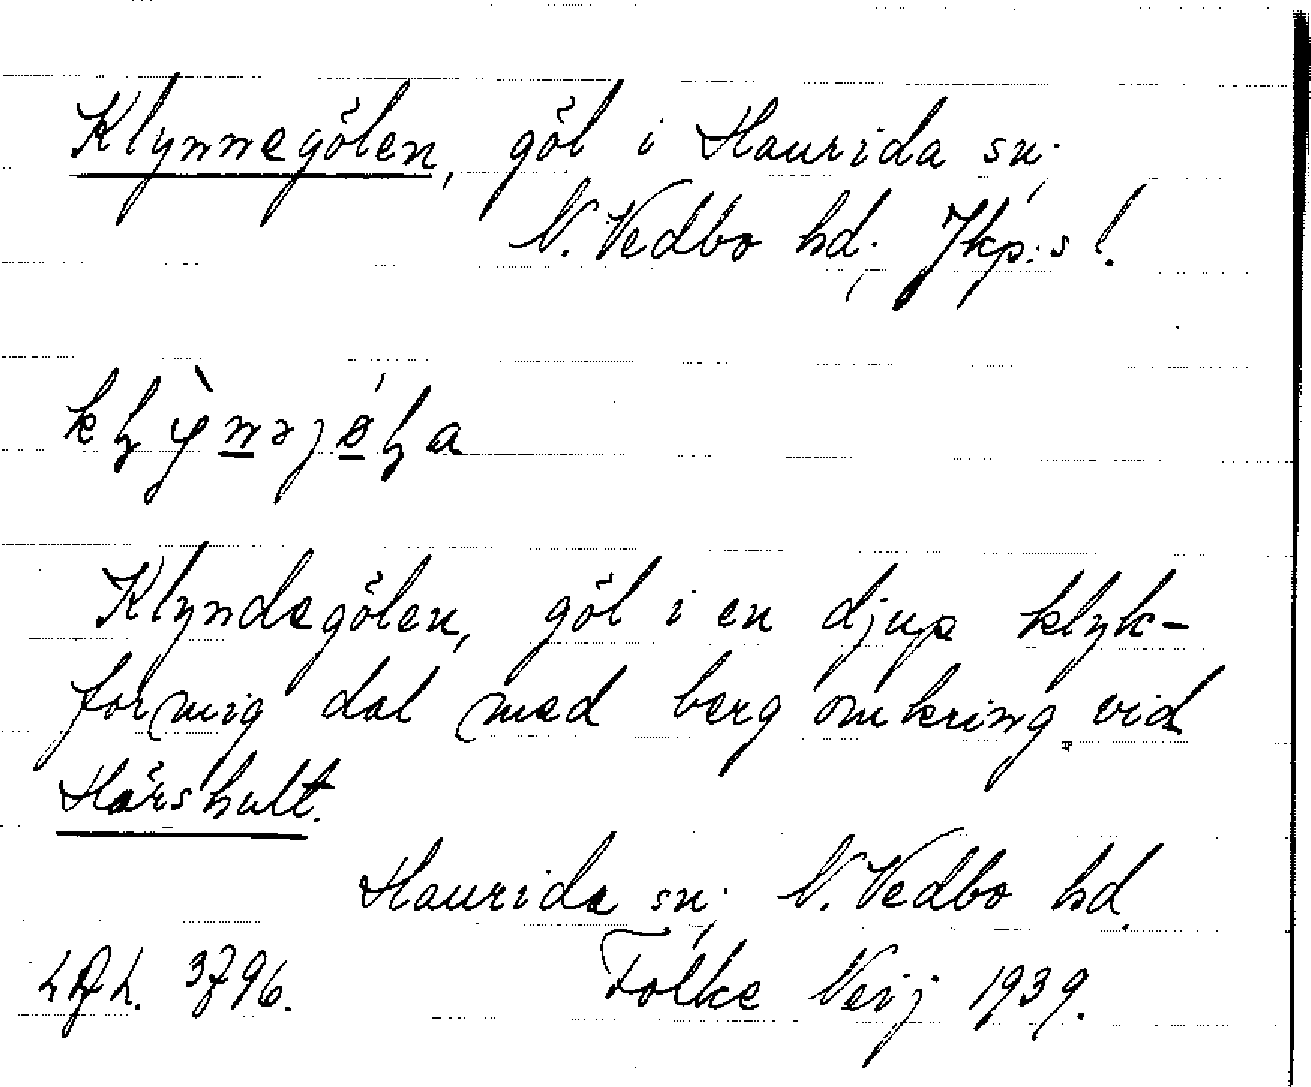 Klynnegölen, göl i Haurida sn;
N. Vedbo hd; Jkp:s l.
Klyndegölen, göl i en djup klyk-
formig dal med berg omkring vid
Hårshult.
Haurida sn; N. Vedbo hd.
3796. Folke Neij 1939.